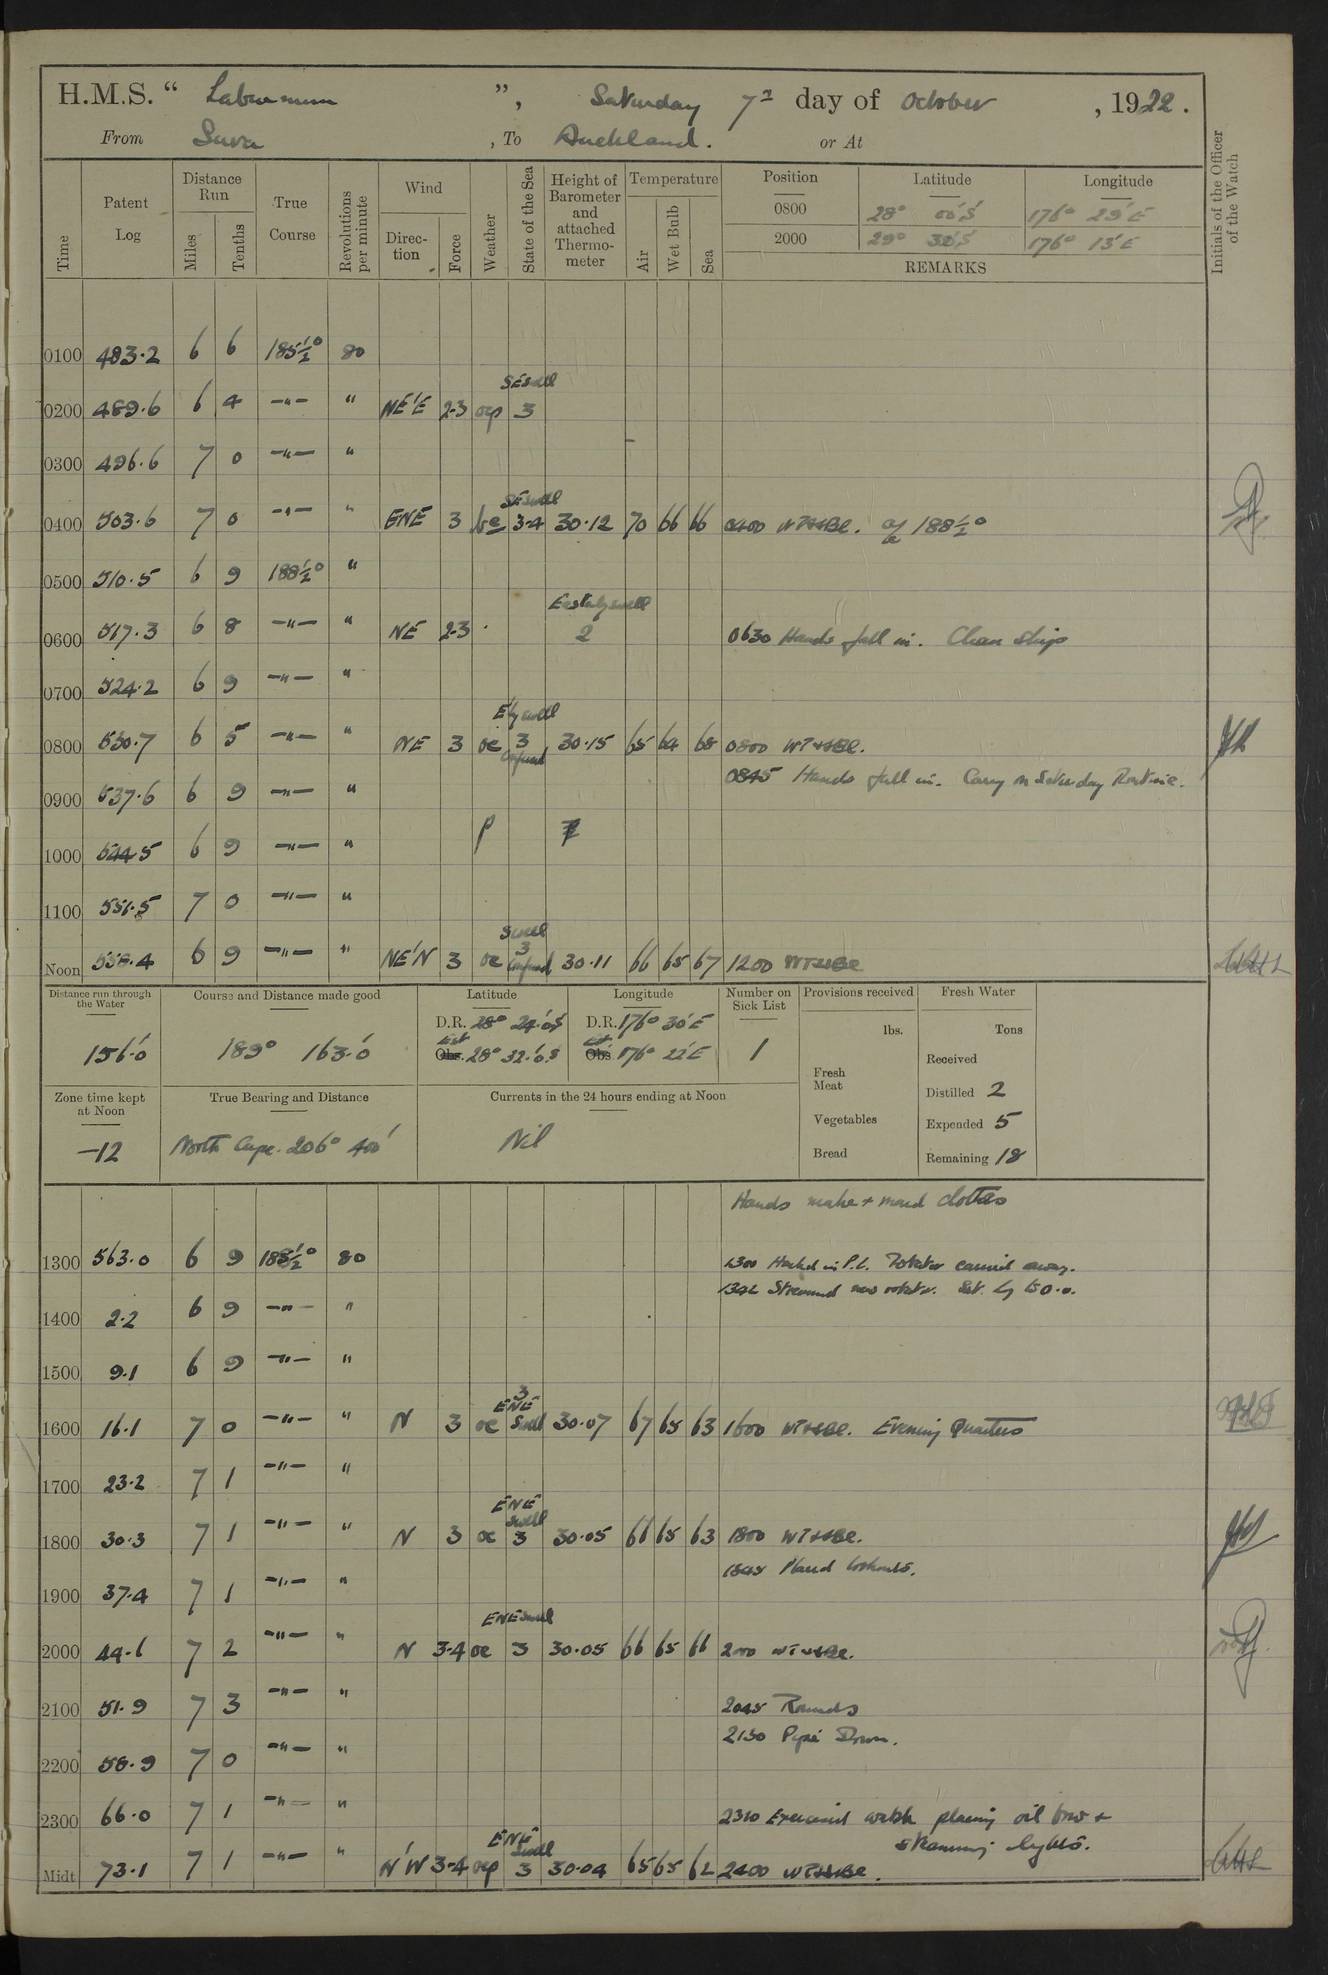 H.M.S. “ Laburnum ”, Saturday 7th day of October , 1922 .
From Suva , To Auckland . or At
Time Patent Log Distance Run Miles Tenths True Course Revolutions per minute Wind Direction Force Weather State of the Sea Height of Barometer and attached Thermometer Temperature Air Wet Bulb Sea Position Latitude Longitude Initials of the Officer of the Watch
0800 28° 00'S 176° 29'E
2000 29° 38'S 176° 13'E
REMARKS
0100 483.2 6 6 185½° 80
SE swell
0200 489.6 6 4 —"— " NE'E 2-3 ocp 3
0300 496.6 7 0 —"— "
SE swell
0400 503.6 7 0 —"— " ENE 3 bc 3-4 30.12 70 66 66 0400 WT+SBC. a/c 188½°
0500 510.5 6 9 188½° "
Easterly swell
0600 517.3 6 8 —"— " NE 2-3 2 0630 Hands fall in. Clean Ship
0700 524.2 6 9 —"— "
E'ly swell
0800 530.7 6 5 —"— " NE 3 oc 3 confused 30.15 65 64 68 0800 WT+SBC.
0845 Hands fall in. Carry on Saturday Routine.
0900 537.6 6 9 —"— "
1000 544.5 6 9 —"— "
1100 551.5 7 0 —"— "
Swell
Noon 558.4 6 9 —"— " NE'N 3 oc 3 confused 30.11 66 65 67 1200 WT+SBC
Distance run through the Water Course and Distance made good Latitude Longitude Number on Sick List Provisions received Fresh Water
D.R. 28° 24'.0S D.R. 176° 30'E lbs. Tons
156'.0 189° 163'.0 Est Obs. 28° 32'.0S Est Obs 176° 22'E 1 Received
Fresh Meat
Distilled 2
Zone time kept at Noon True Bearing and Distance Currents in the 24 hours ending at Noon
Vegetables Expended 5
-12 North Cape. 206° 400' Nil Bread Remaining 18
Hands make + mend clothes
1300 563.0 6 9 188½° 80 1300 Hauled in P.L. Rotator carried away.
1342 Streamed new rotator. Set. Lg to 0.0.
1400 2.2 6 9 —"— "
1500 9.1 6 9 —"— "
3 ENE
1600 16.1 7 0 —"— " N 3 oc Swell 30.07 67 65 63 1600 WT+SBC. Evening Quarters
1700 23.2 7 1 —"— "
ENE swell
1800 30.3 7 1 —"— " N 3 oc 3 30.05 66 65 63 1800 WT+SBC.
1845 Placed lookouts.
1900 37.4 7 1 —"— "
ENE swell
2000 44.6 7 2 —"— " N 3-4 oc 3 30.05 66 65 66 2000 WT+SBC.
2100 51.9 7 3 —"— " 2045 Rounds
2130 Pipe Down.
2200 58.9 7 0 —"— "
2300 66.0 7 1 —"— " 2310 Exercised watch placing oil bow +
steaming lights.
ENE swell
Midt 73.1 7 1 —"— " N'W 3-4 ocp 3 30.04 65 65 62 2400 WT+SBC.